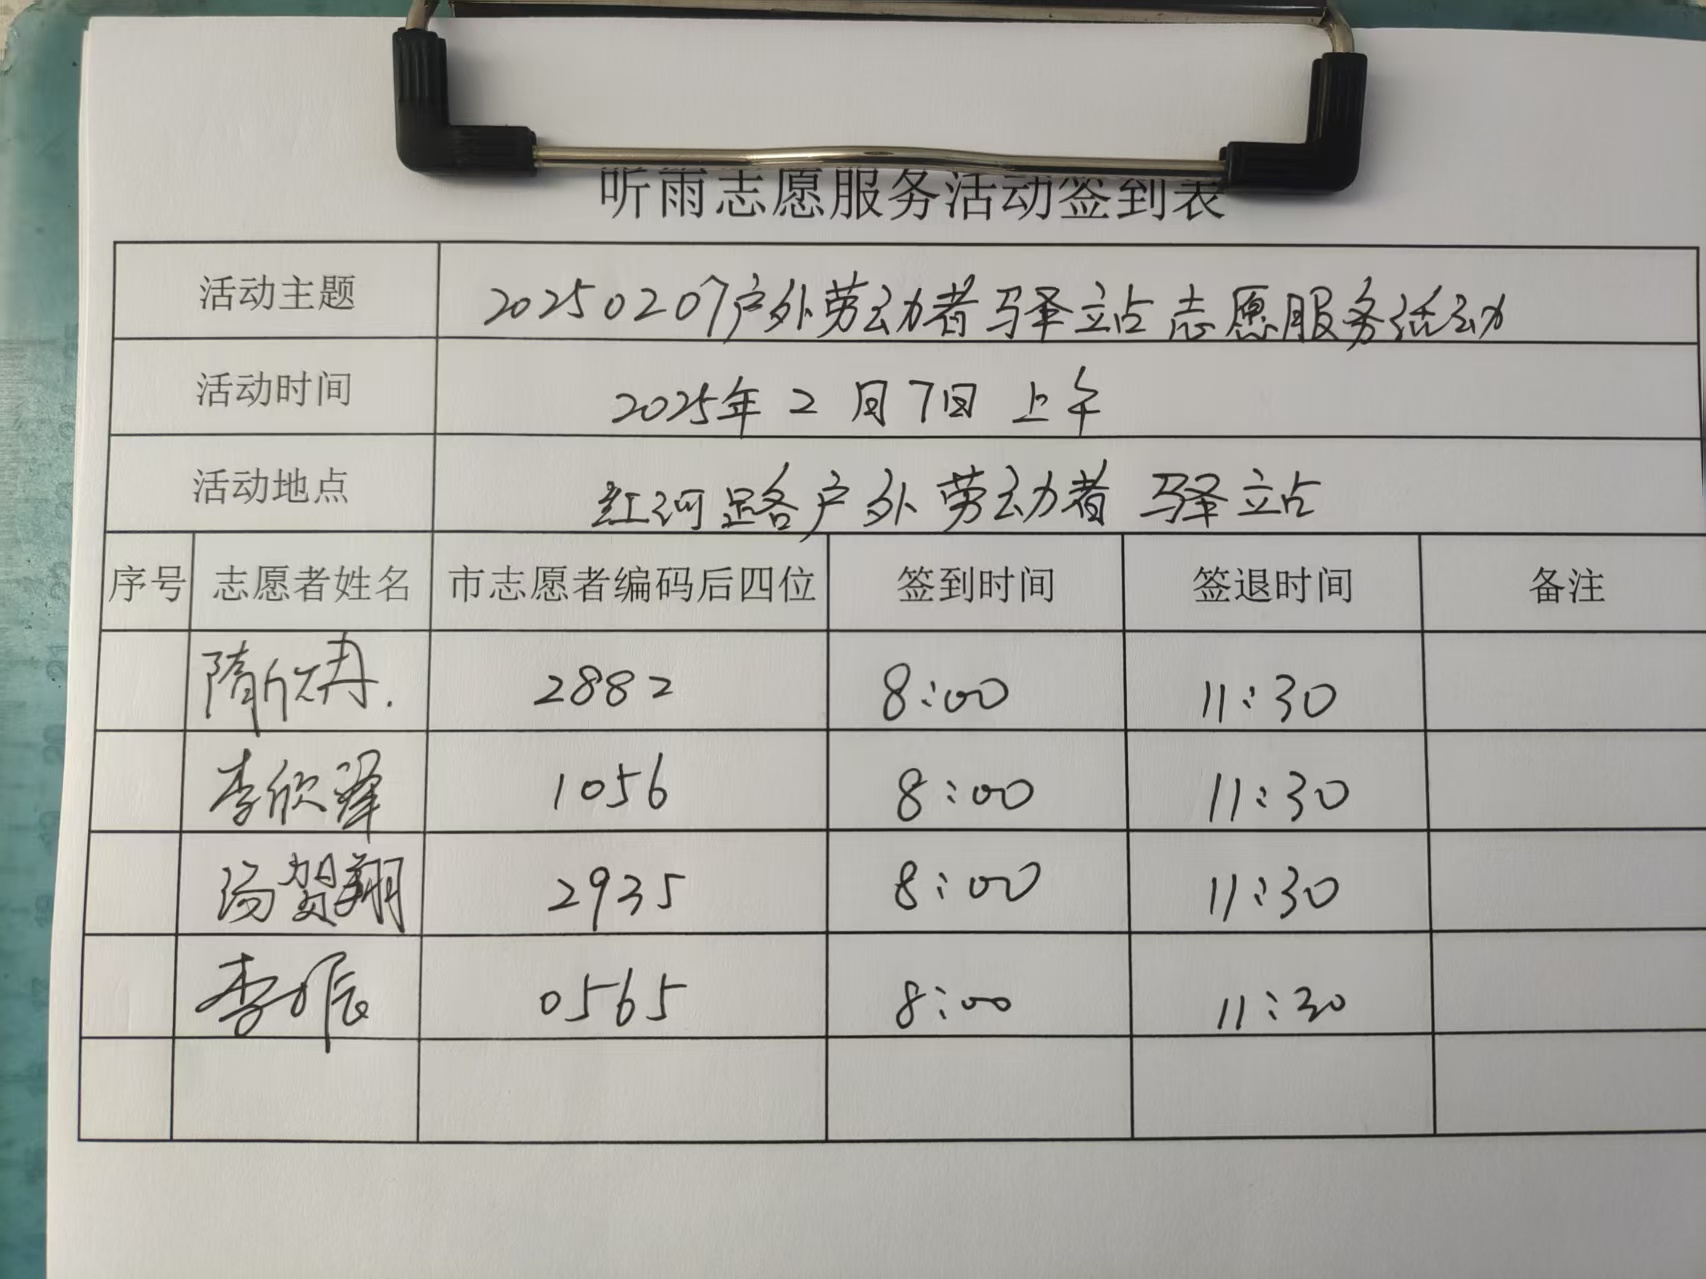 听雨志愿服务活动签到表
活动主题 20250207户外劳动者驿立占志愿服务活动
活动时间 2025年2月7日 上午
活动地点 红河路户外劳动者驿站
序号 志愿者姓名 市志愿者编码后四位 签到时间 签退时间 备注
隋欣冉. 2882 8:00 11:30
李欣泽 1056 8:00 11:30
汤贺翔 2935 8:00 11:30
李 0565 8:00 11:30